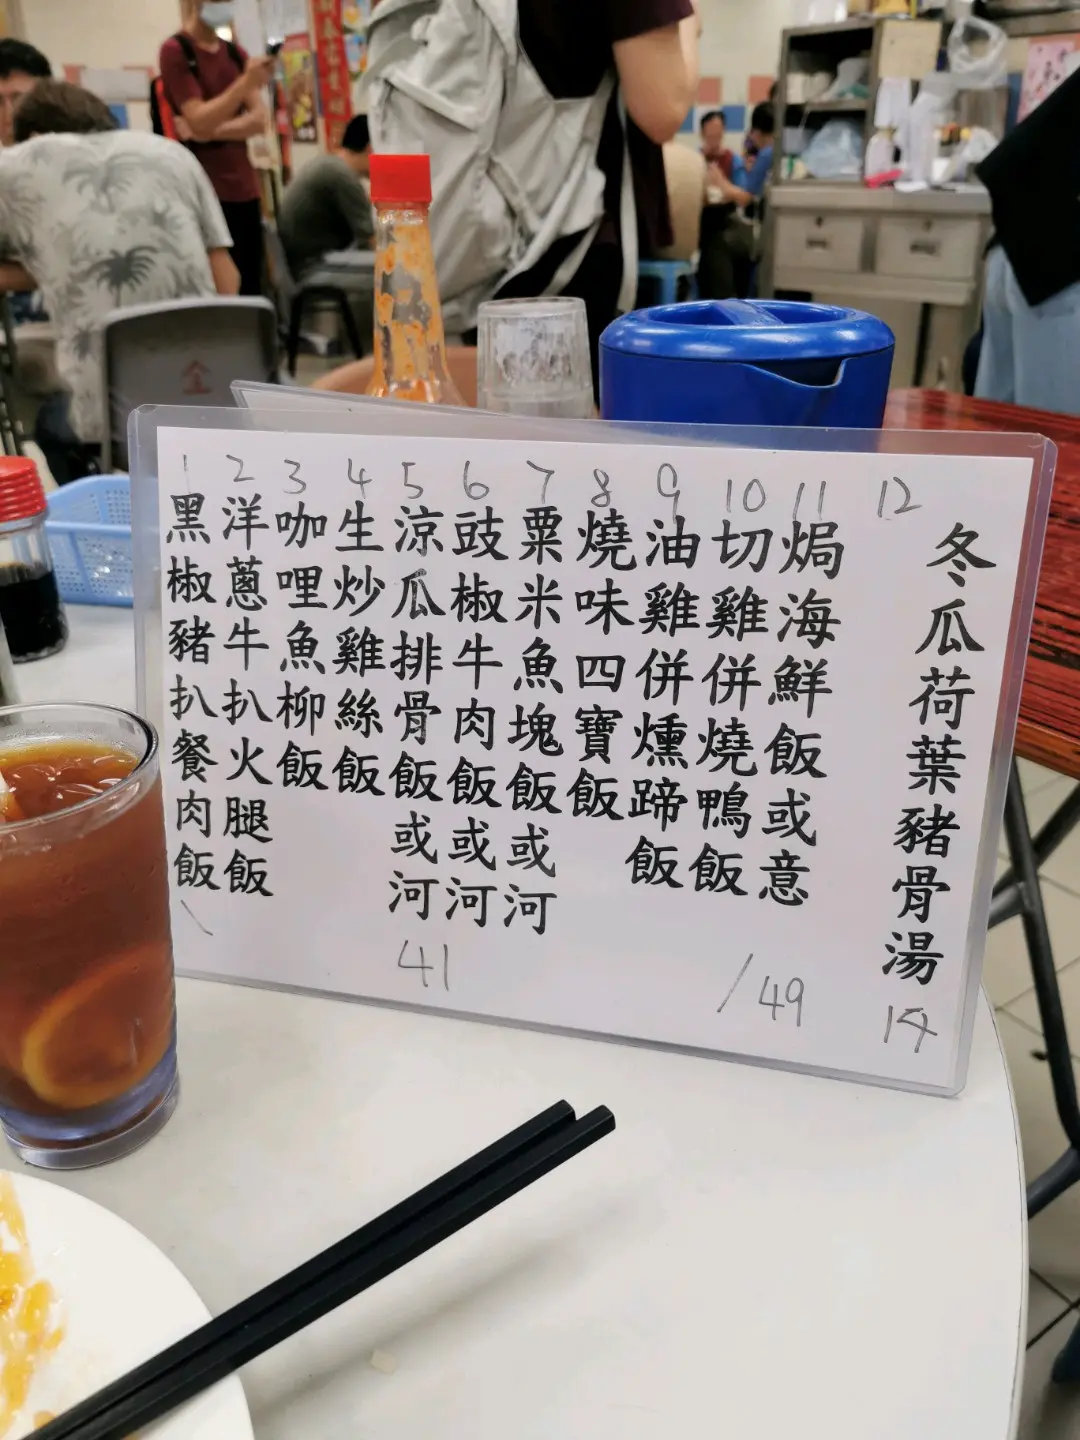 1 黑椒豬扒餐肉飯
2 洋蔥牛扒火腿飯
3 咖哩魚柳飯
4 生炒雞絲飯
5 涼瓜排骨飯或河
6 豉椒牛肉飯或河
7 粟米魚塊飯或河
8 燒味四寶飯
9 油雞併燻蹄飯
10 切雞併燒鴨飯
11 焗海鮮飯或意
12 冬瓜荷葉豬骨湯
41
/49
14